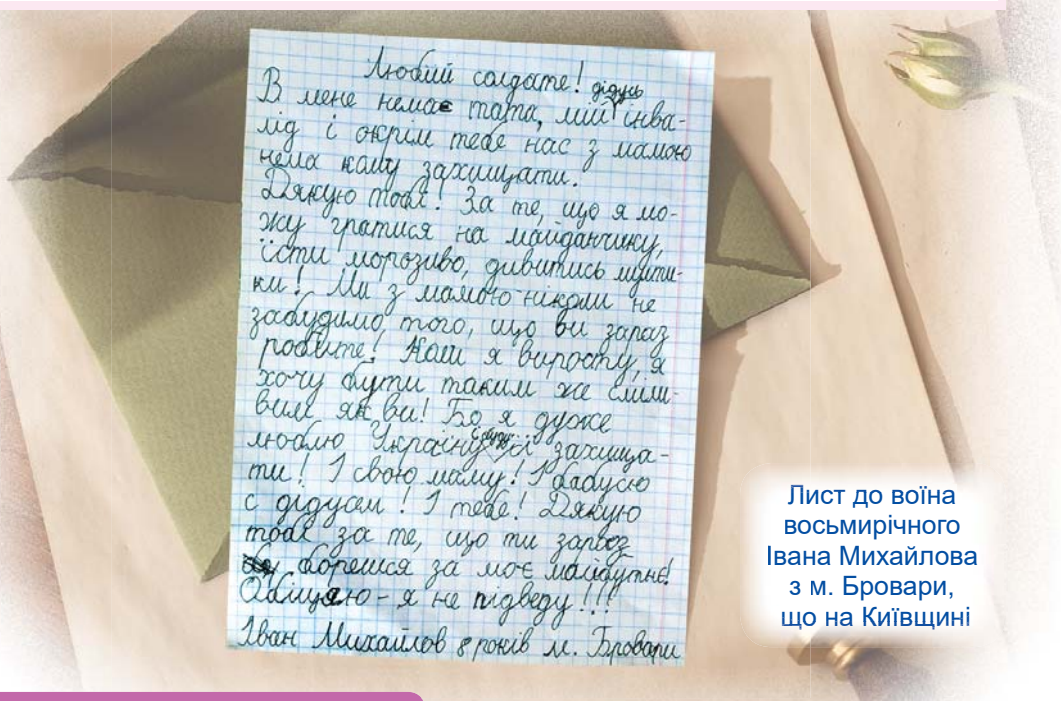 Любий солдате!
В мене немає тата, мій дідусь інва-
лід і окрім тебе нас з мамою
нема кому захищати.
Дякую тобі! За те, що я мо-
жу гратися на майданчику,
їсти морозиво, дивитись мульти-
ки! Ми з мамою ніколи не
забудимо того, що ви зараз
робите! Коли я виросту, я
хочу бути таким же сміли-
вим як ви! Бо я дуже
люблю Україну і буду її захища-
ти! І свою маму! І бабусю
с дідусем! І тебе! Дякую
тобі за те, що ти зараз
борешся за моє майбутнє!
Обіцяю - я не підведу!!!
Іван Михайлов 8 років м. Бровари
Лист до воїна
восьмирічного
Івана Михайлова
з м. Бровари,
що на Київщині